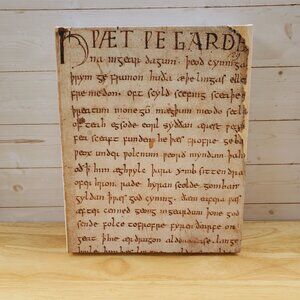 HǷÆT ǷE GARDE
na ingear dagum. þeod cyninga
þrym ge frunon huða æþelingas elle
fre medon. oft scyld scefing sceaþe
þreatum monegū mægþum meodo setl
of teah egsode eorl syððan ærest ƿear
fea sceaft funden he þæs frofre geba
ƿeox under ƿolcnum ƿeorð myndum þah
oð þ him æghƿylc þara ymb sittendra
ofer hron rade hyran scolde gomban
gyldan þ ƿæs god cyning ðæm eafera ƿæs
æfter cenned geong ingeardum þone god
sende folce tofrofre fyren ðearfe on
geat þ hie ær drugon aldor ase. lange